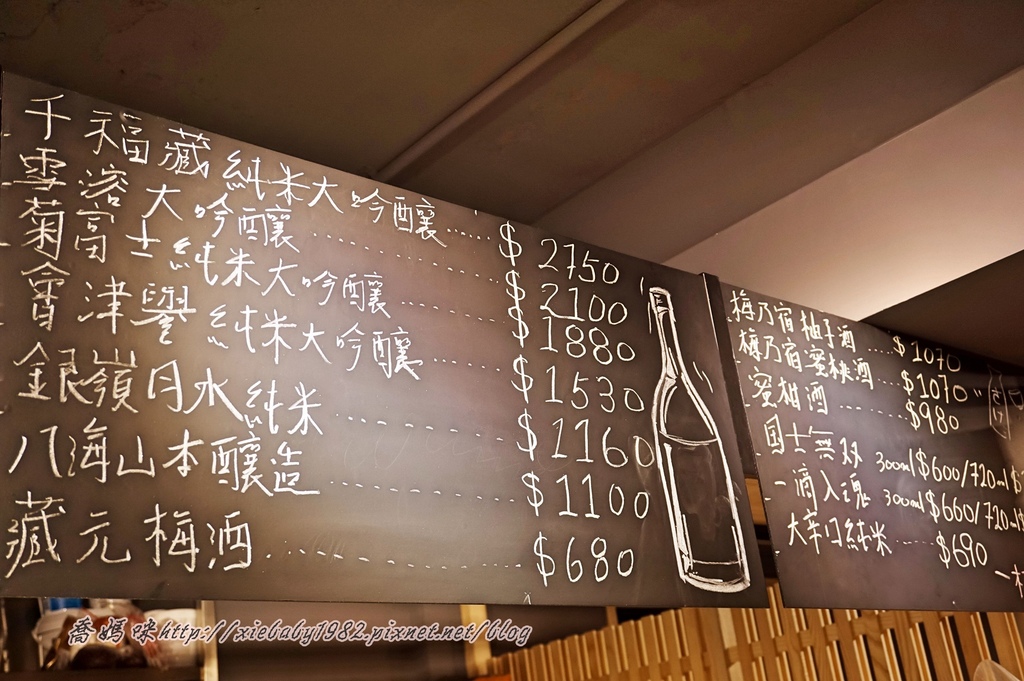 千福藏純米大吟釀......$2750
雪溶大吟釀..............$2100
菊富士純米大吟釀......$1880
會津譽純米大吟釀......$1530
銀嶺月水純米..............$1160
八海山本釀造..............$1100
藏元梅酒..............$680
梅乃宿柚子酒....$1070
梅乃宿蜜桃酒....$1070
蜜柑酒........$980
国士無双 300ml$600/720ml$
一滴入魂 300ml$660/720ml$
大辛口純米.....$690
一杯
喬媽咪http://xiebaby1982.pixnet.net/blog